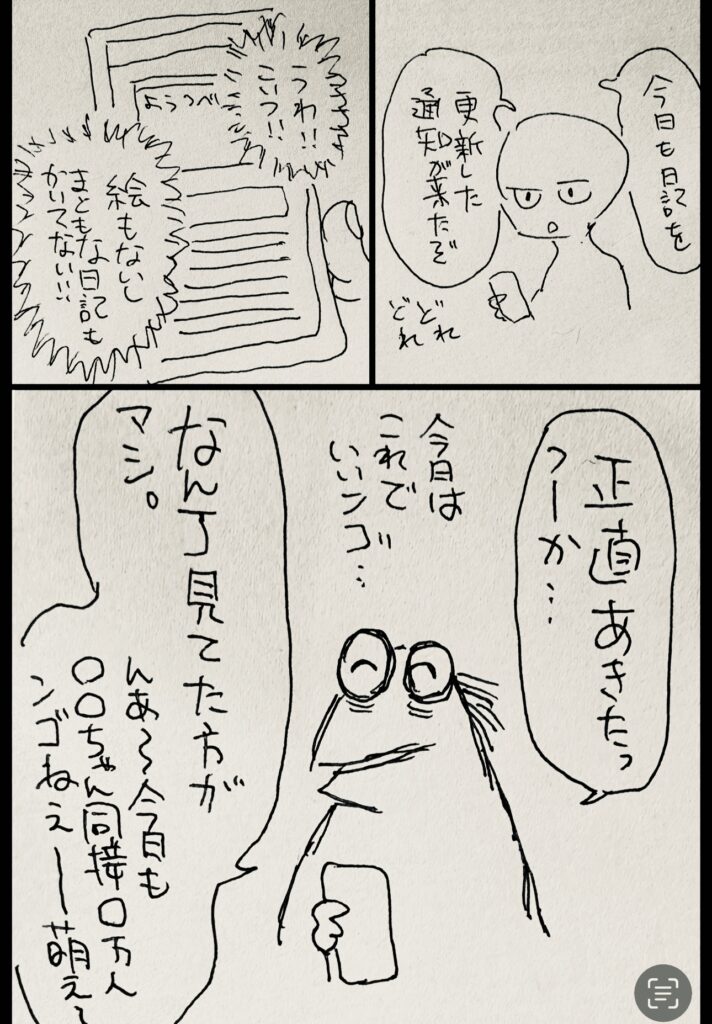 今日も日記を
更新した
通知が来たぞ
どどれ
どれ
うわ!!
こいつ!!
ようつべ
絵もないし
まともな日記も
かいてない!!!
正直あきたっ
つーか…
今日は
これで
いいンゴ…
なんJ見てた方が
マシ。
んあ～今日も
〇〇ちゃん同接〇万人
ンゴねえー萌え～